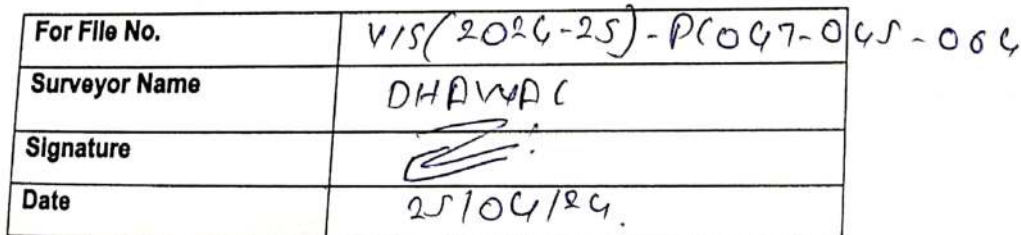 For File No. VIS(2024-25)-PC047-045-064
Surveyor Name DHAWAL
Signature
Date 25/04/24.